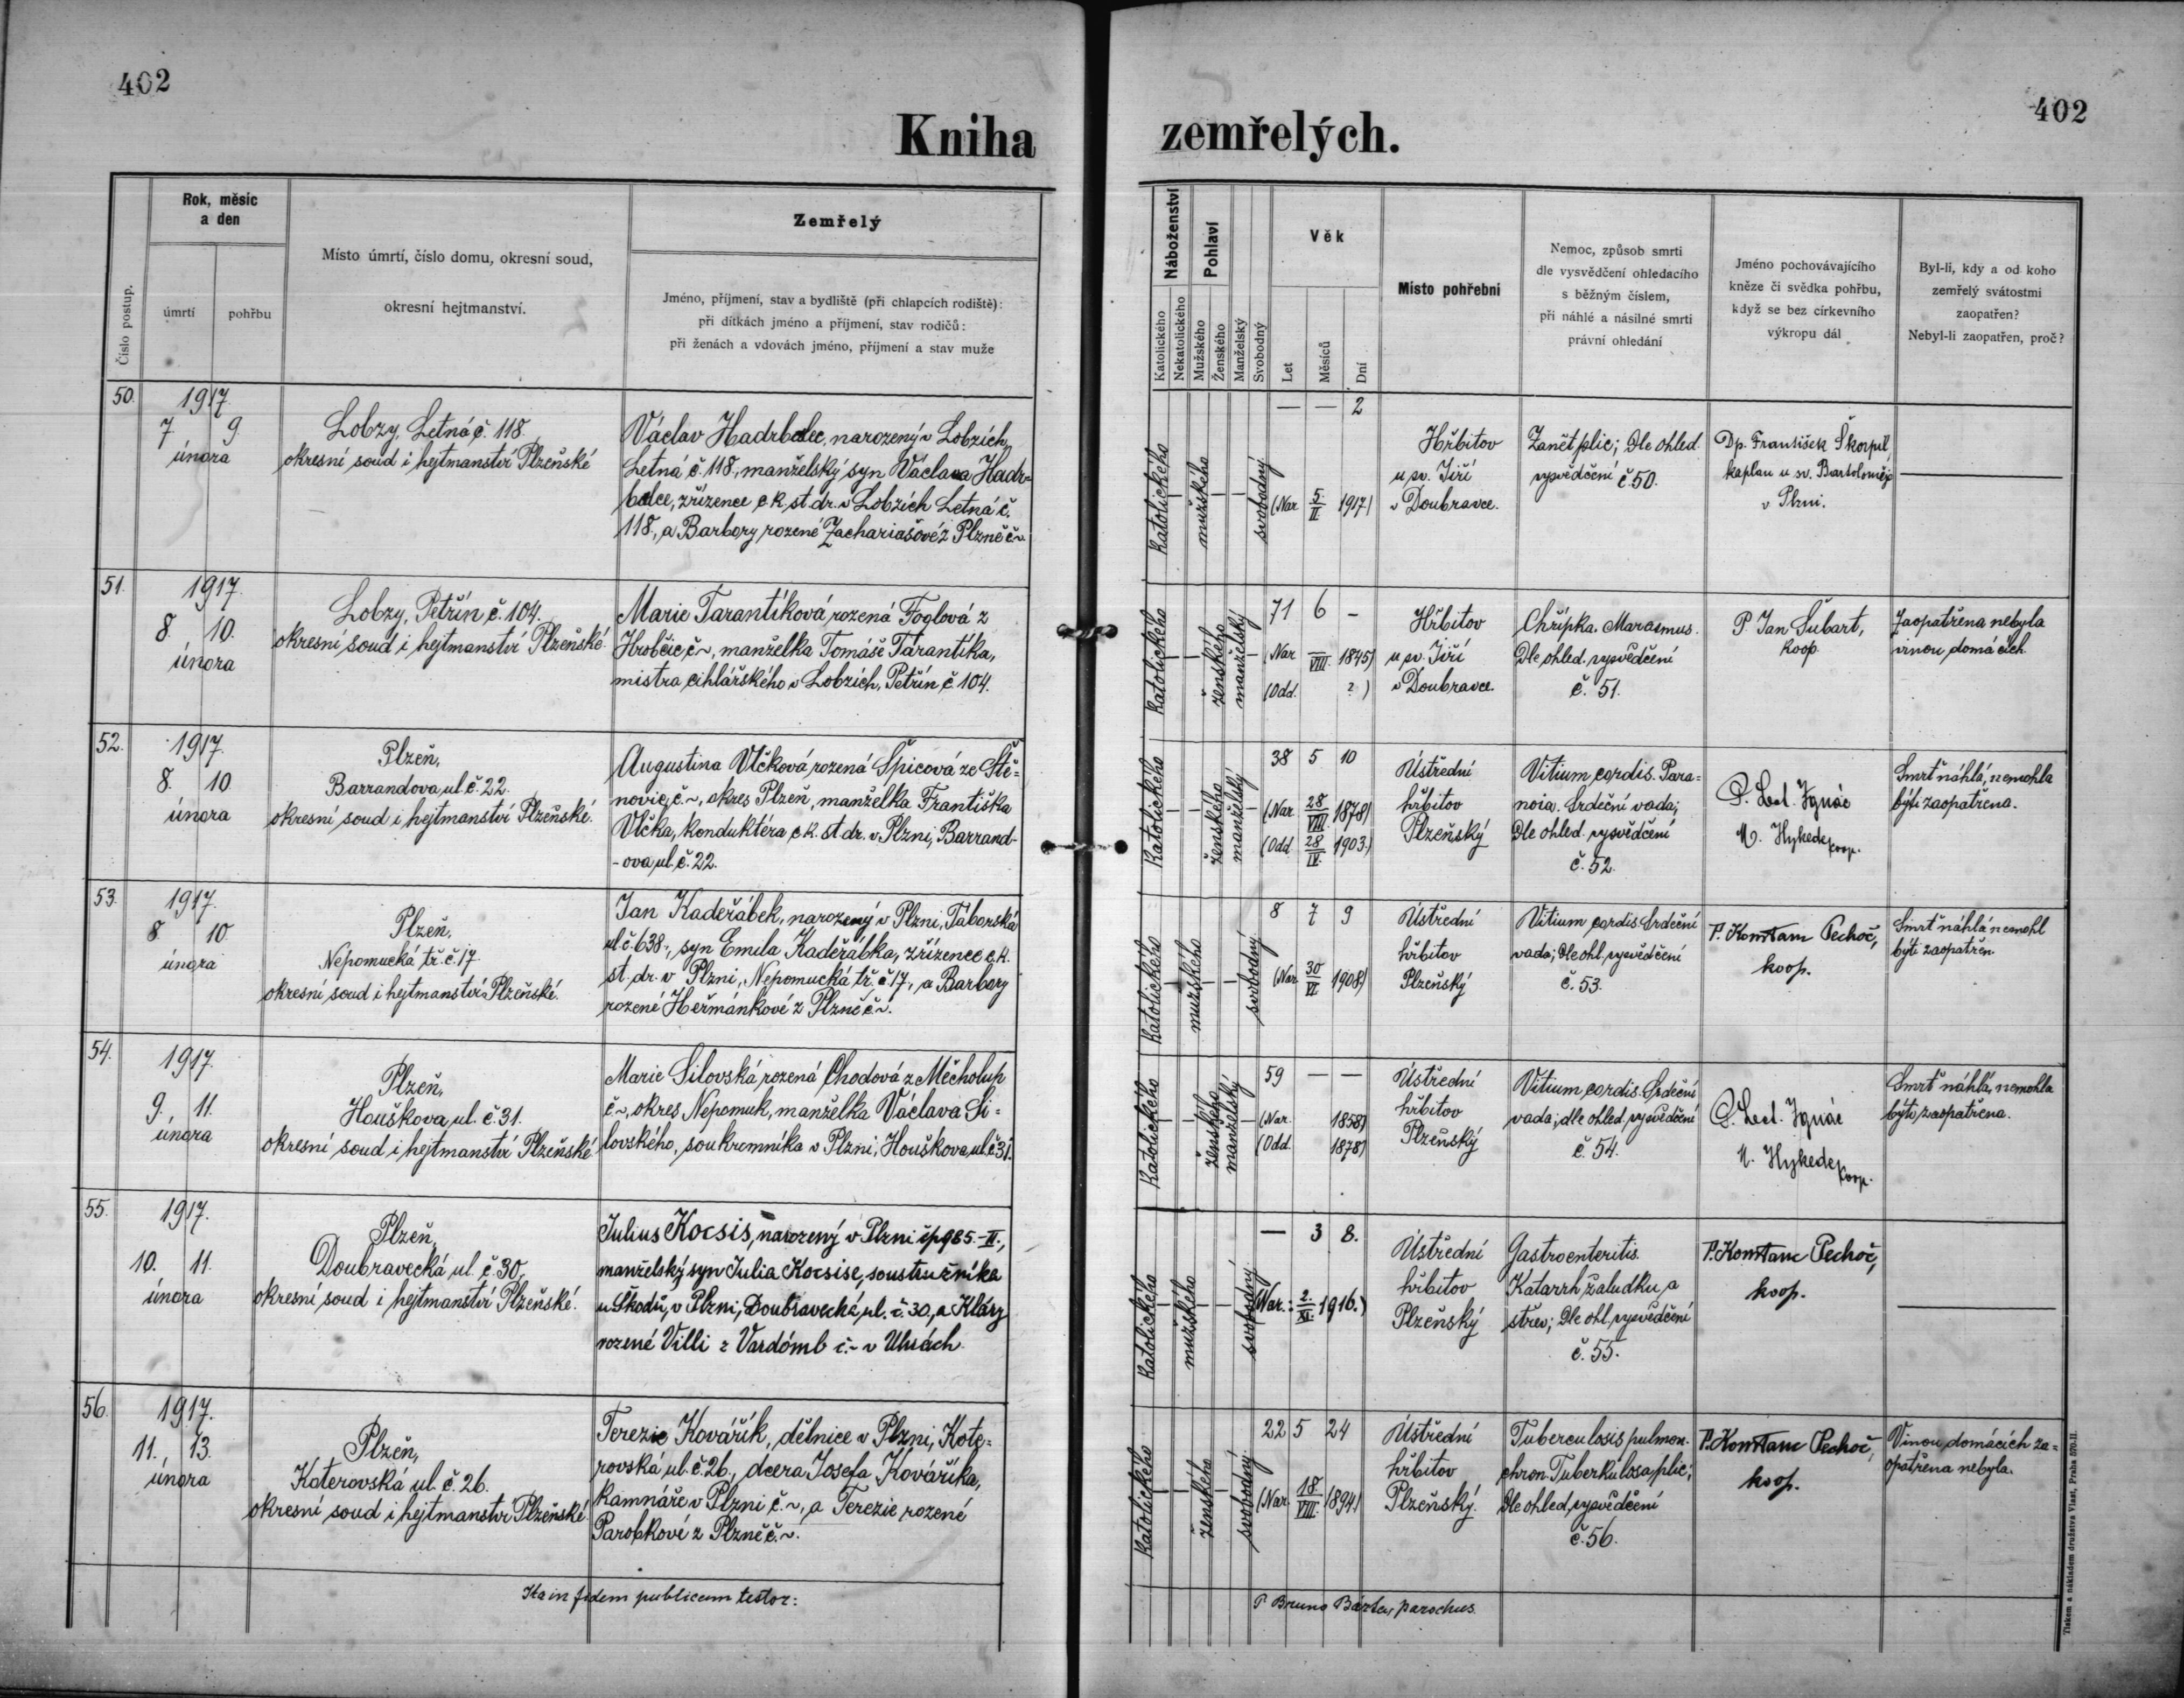 402
402
Kniha zemřelých.
Číslo postup.
Rok, měsíc
a den
úmrtí
pohřbu
Místo úmrtí, číslo domu, okresní soud,
okresní hejtmanství.
Zemřelý
Jméno, příjmení, stav a bydliště (při chlapcích rodiště):
při dítkách jméno a příjmení, stav rodičů:
při ženách a vdovách jméno, příjmení a stav muže
Náboženství
Katolického
Nekatolického
Pohlaví
Mužského
Ženského
Manželský
Svobodný
Věk
Let
Měsíců
Dní
Místo pohřební
Nemoc, způsob smrti
dle vysvědčení ohledacího
s běžným číslem,
při náhlé a násilné smrti
právní ohledání
Jméno pochovávajícího
kněze či svědka pohřbu,
když se bez církevního
výkropu dál
Byl-li, kdy a od koho
zemřelý svátostmi
zaopatřen?
Nebyl-li zaopatřen, proč?
50.
1917.
7 9.
února
Lobzy, Letná č. 118.
okresní soud i hejtmanství Plzeňské
Václav Hadrbolec, narozený v Lobzích,
Letná č. 118., manželský syn Václava Hadr=
bolce, zřízence c.k. st. dr. v Lobzích Letná č.
118., a Barbory rozené Zachariašové z Plzně č. ~
katolického
mužského
svobodný
— — 2
(Nar. 5./II. 1917)
Hřbitov
u sv. Jiří
v Doubravce.
Zanět plic; Dle ohled.
vysvědčení č. 50.
Dp. František Škorpil,
kaplan u sv. Bartoloměje
v Plzni.
51.
1917.
8. 10.
února
Lobzy, Petřín č. 104.
okresní soud i hejtmanství Plzeňské.
Marie Tarantíková rozená Foglová z
Hrobčic č ~, manželka Tomáše Tarantíka,
mistra cihlářského v Lobzích, Petřín č. 104.
katolického
ženského
manželský
71 6 –
(Nar. —/VIII. 1845)
(Odd. ?)
Hřbitov
u sv. Jiří
v Doubravce.
Chřipka. Marasmus.
Dle ohled. vysvědčení
č. 51.
P. Jan Šubart,
koop.
Zaopatřena nebyla
vinou domácích.
52.
1917.
8. 10
února
Plzeň,
Barrandova ul. č. 22.
okresní soud i hejtmanství Plzeňské.
Augustina Vlčková rozená Špicová ze Ště=
novic, č. ~, okres Plzeň, manželka Františka
Vlčka, konduktéra c.k. st. dr. v Plzni, Barrand-
-ova ul. č. 22.
katolického
ženského
manželský
38 5 10
(Nar. 28/VIII. 1878)
(Odd. 28/IV. 1903.)
Ústřední
hřbitov
Plzeňský
Vitium cordis. Para=
noia. Srdeční vada;
Dle ohled. vysvědčení
č. 52.
P. Lect. Ignác
M. Hykede
koop.
Smrť náhlá, nemohla
býti zaopatřena.
53.
1917.
8 10
února
Plzeň,
Nepomucká tř. č. 17.
okresní soud i hejtmanství Plzeňské.
Jan Kadeřábek, narozený v Plzni, Táborská
ul. č. 638., syn Emila Kadeřábka, zřízence c.k.
st. dr. v Plzni, Nepomucká tř. č. 17., a Barbory
rozené Heřmánkové z Plzně č. ~.
katolického
mužského
svobodný
8 7 9
(Nar. 30/VI. 1908)
Ústřední
hřbitov
Plzeňský
Vitium cordis. Srdeční
vada; Dle ohl. vysvědčení
č. 53.
P. Konstanc Pechoč,
koop.
Smrť náhlá, nemohl
býti zaopatřen.
54.
1917.
9., 11.
února
Plzeň,
Houškova ul. č. 31.
okresní soud i hejtmanství Plzeňské
Marie Silovská rozená Chodová z Měcholup
č. ~, okres Nepomuk, manželka Václava Si=
lovského, soukromníka v Plzni, Houškova ul. č. 31.
katolického
ženského
manželský
59 — —
(Nar. 1858)
(Odd. 1878)
Ústřední
hřbitov
Plzeňský
Vitium cordis. Srdeční
vada; dle ohled. vysvědčení
č. 54.
P. Lect. Ignác
M. Hykede
koop.
Smrť náhlá, nemohla
býti zaopatřena.
55.
1917.
10. 11.
února
Plzeň,
Doubravecká ul. č. 30,
okresní soud i hejtmanství Plzeňské.
Julius Kocsis, narozený v Plzni čp 985.-II.,
manželský syn Julia Kocsise, soustružníka
u Škodů, v Plzni, Doubravecká ul. č. 30, a Kláry
rozené Villi z Vardómb č. ~ v Uhrách.
katolického
mužského
svobodný
— 3 8.
(Nar.: 2./XI. 1916.)
Ústřední
hřbitov
Plzeňský
Gastroenteritis.
Katarrh žaludku a
střev; Dle ohl. vysvědčení
č. 55.
P. Konstanc Pechoč,
koop.
56.
1917.
11., 13.
února
Plzeň,
Koterovská ul. č. 26.
okresní soud i hejtmanství Plzeňské.
Terezie Kovářík, dělnice v Plzni, Kote=
rovská ul. č. 26., dcera Josefa Kováříka,
kamnáře v Plzni č. ~, a Terezie rozené
Parobkové z Plzně č. ~.
katolického
ženského
svobodný
22 5 24
(Nar. 18/VIII. 1894)
Ústřední
hřbitov
Plzeňský.
Tuberculosis pulmon.
chron. Tuberkulosa plic;
Dle ohled. vysvědčení
č. 56.
P. Konstanc Pechoč,
koop.
Vinou domácích za=
opatřena nebyla.
Ita in fidem publicam testor:
P. Bruno Bárta, parochus.
Tiskem a nákladem družstva Vlast, Praha 570-II.